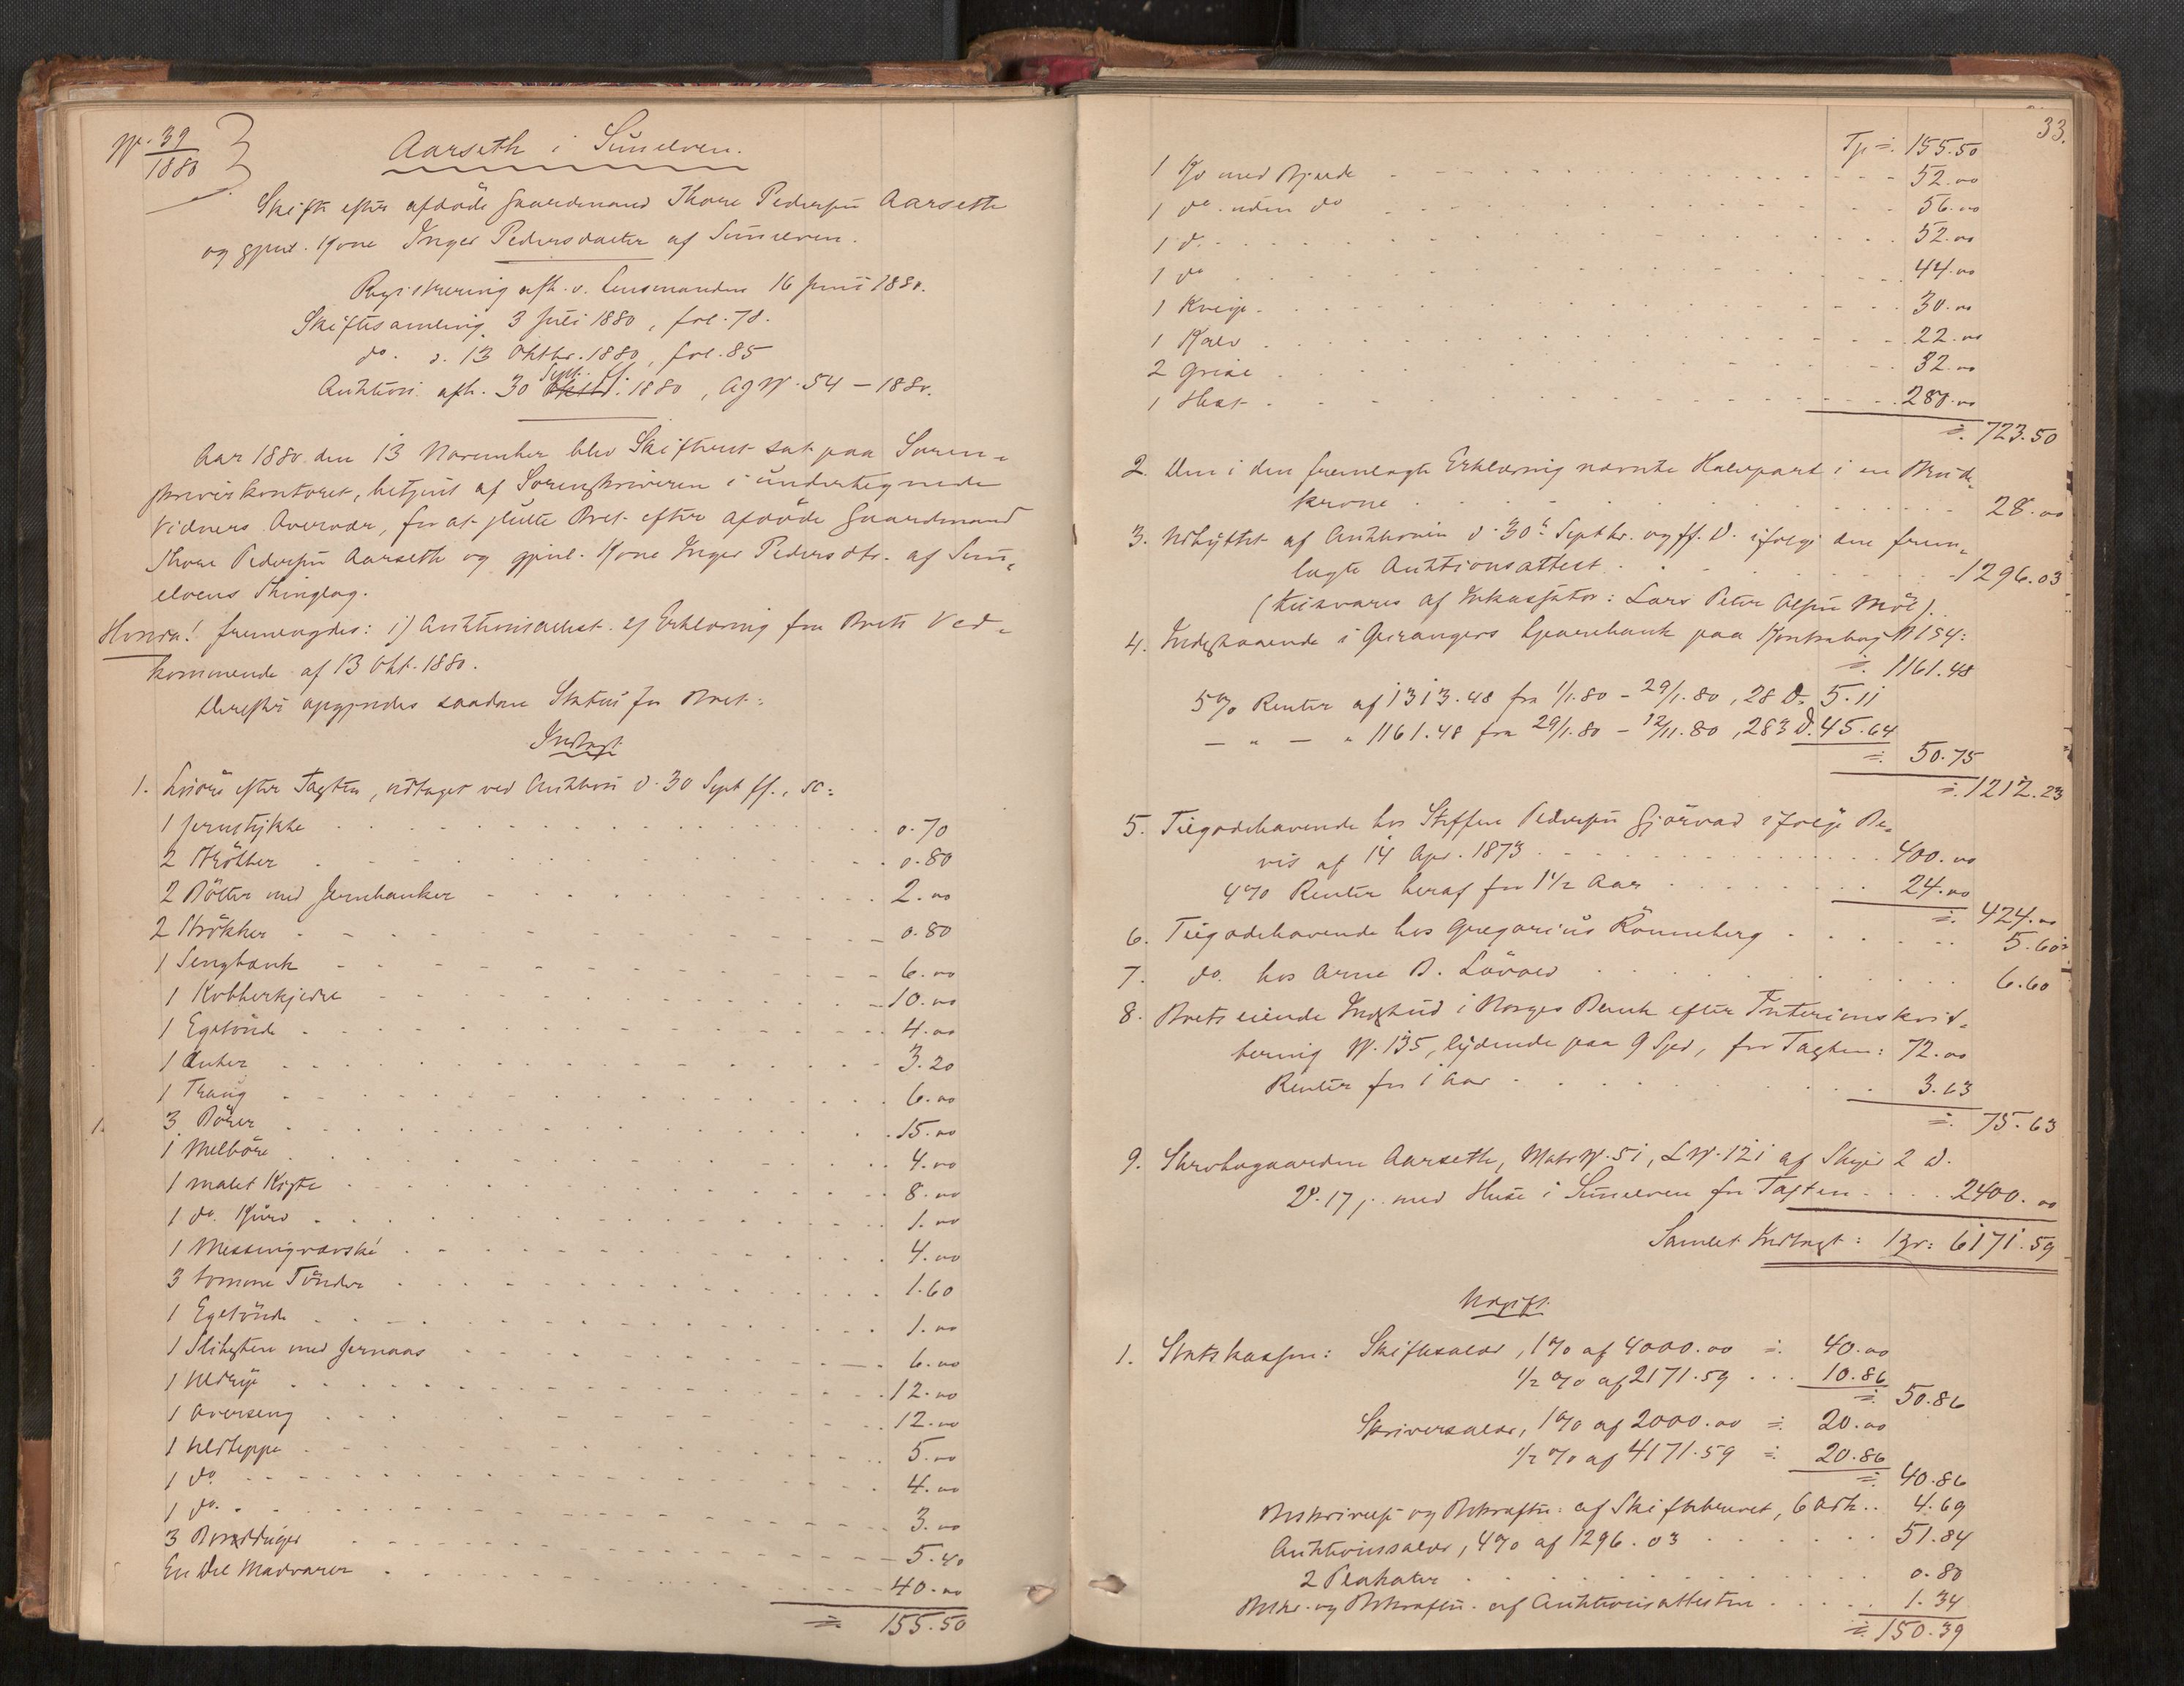 No. 39
1880
Aarseth i Sunelven.
Skifte efter afdøde Gaardmand Thore Pedersen Aarseth
og gjenl. Kone Inger Pedersdatter af Sunelven.
Registrering afh. v. Lensmanden 16 Juni 1880.
Skiftesamling 3 Juli 1880, fol. 78.
do. d. 13 Oktbr. 1880, fol. 85
Auktion afh. 30 Sept. ff. 1880, A g No. 54 - 1880.
Aar 1880 den 13 November blev Skifteret sat paa Soren-
skriverkontoret, betjent af Sorenskriveren i undertegnede
Vidners Overvær, for at slutte Boet efter afdøde Gaardmand
Thore Pedersen Aarseth og gjenl. Kone Inger Pedersdtr. af Sun-
elvens Thinglag.
Hvorda! fremlagdes: 1) Auktionsattest. 2) Erklæring fra Boets Ved-
kommende af 13 Okt. 1880.
Derefter opgjordes saadan Status for Boet:
Indtægt
1. Løsøre efter Taxten, udtaget ved Auktion d. 30 Sept ff., sc:
1 Jernstykke 0.70
2 0.80
2 Bøtter med Jernhanker 2.00
2 Strökker 0.80
1 Sengbænk 6.00
1 Kobberkjedel 10.00
1 Egetønde 4.00
1 Anker 3.20
1 Traug 6.00
3 Börer 15.00
1 Melböre 4.00
1 malet Kiste 8.00
1 do. Kurv 1.00
1 4.00
3 tomme Tönder 1.60
1 Egetönde 1.00
1 Slibesten med Jernaas 6.00
1 Uldrye 12.00
1 Overseng 12.00
1 Uldteppe 5.00
1 do. 4.00
1 do. 3.00
3 5.40
En Del Madvarer 40.00
= 155.50
33.
Tp = 155.50
1 Ko med Bjelde 52.00
1 do. uden do 56.00
1 d. 52.00
1 do 44.00
1 Kvige 30.00
1 Kalv 22.00
2 Grise 32.00
1 Hest 280.00
= 723.50
2. Den i den fremlagte Erklæring nævnte Halvpart i en Brude-
krone 28.00
3. Udbyttet af Auktionen d. 30te Septbr. og ff. D. ifølge den frem-
lagte Auktionsattest 1296.03
(tilsvares af Inkassator: Lars Peter Olsen Möl).
4. Indestaaende i Geirangers Sparebank paa Kontrabog No 154:
= 1161.48
5% Renter af 1313.48 fra 1/1.80 - 29/1.80, 28 D. 5.11
— " — " 1161.48 fra 29/1.80 - 12/11.80, 283 D. 45.64
= 50.75
= 1212.23
5. Tilgodehavende hos Steffen Pedersen Gjörvad ifølge Be-
vis af 14 Apr. 1873 400.00
4% Renter heraf for 1½ Aar 24.00
= 424.00
6. Tilgodehavende hos Gregorius Rönneberg 5.60
7. do. hos Arne B. Lövoll 6.60
8. Boets eiende Indskud i Norges Bank efter Interimskvit-
tering No. 135, lydende paa 9 Spd, for Taxten: 72.00
Renter for 1 Aar 3.63
= 75.63
9. Skrabagaarden Aarseth, Matr No. 51, L No. 121 af Skyld 2 D.
2 . 17 , med Huse i Sunelven for Taxten 2400.00
Samlet Indtægt: Kr: 6171.59
Udgift
1. Statskassen: Skiftesalær, 1% af 4000.00 = 40.00
½ % af 2171.59 10.86
= 50.86
Skriversalær, 1% af 2000.00 = 20.00
½ % af 4171.59 = 20.86
= 40.86
Beskrivelse og Bekræftn: af Skiftebrevet, 6 Ark 4.69
Auktionssalær, 4% af 1296.03 51.84
2 Plakater 0.80
Beskr. og Bekræftn. af Auktionsattesten 1.34
= 150.39